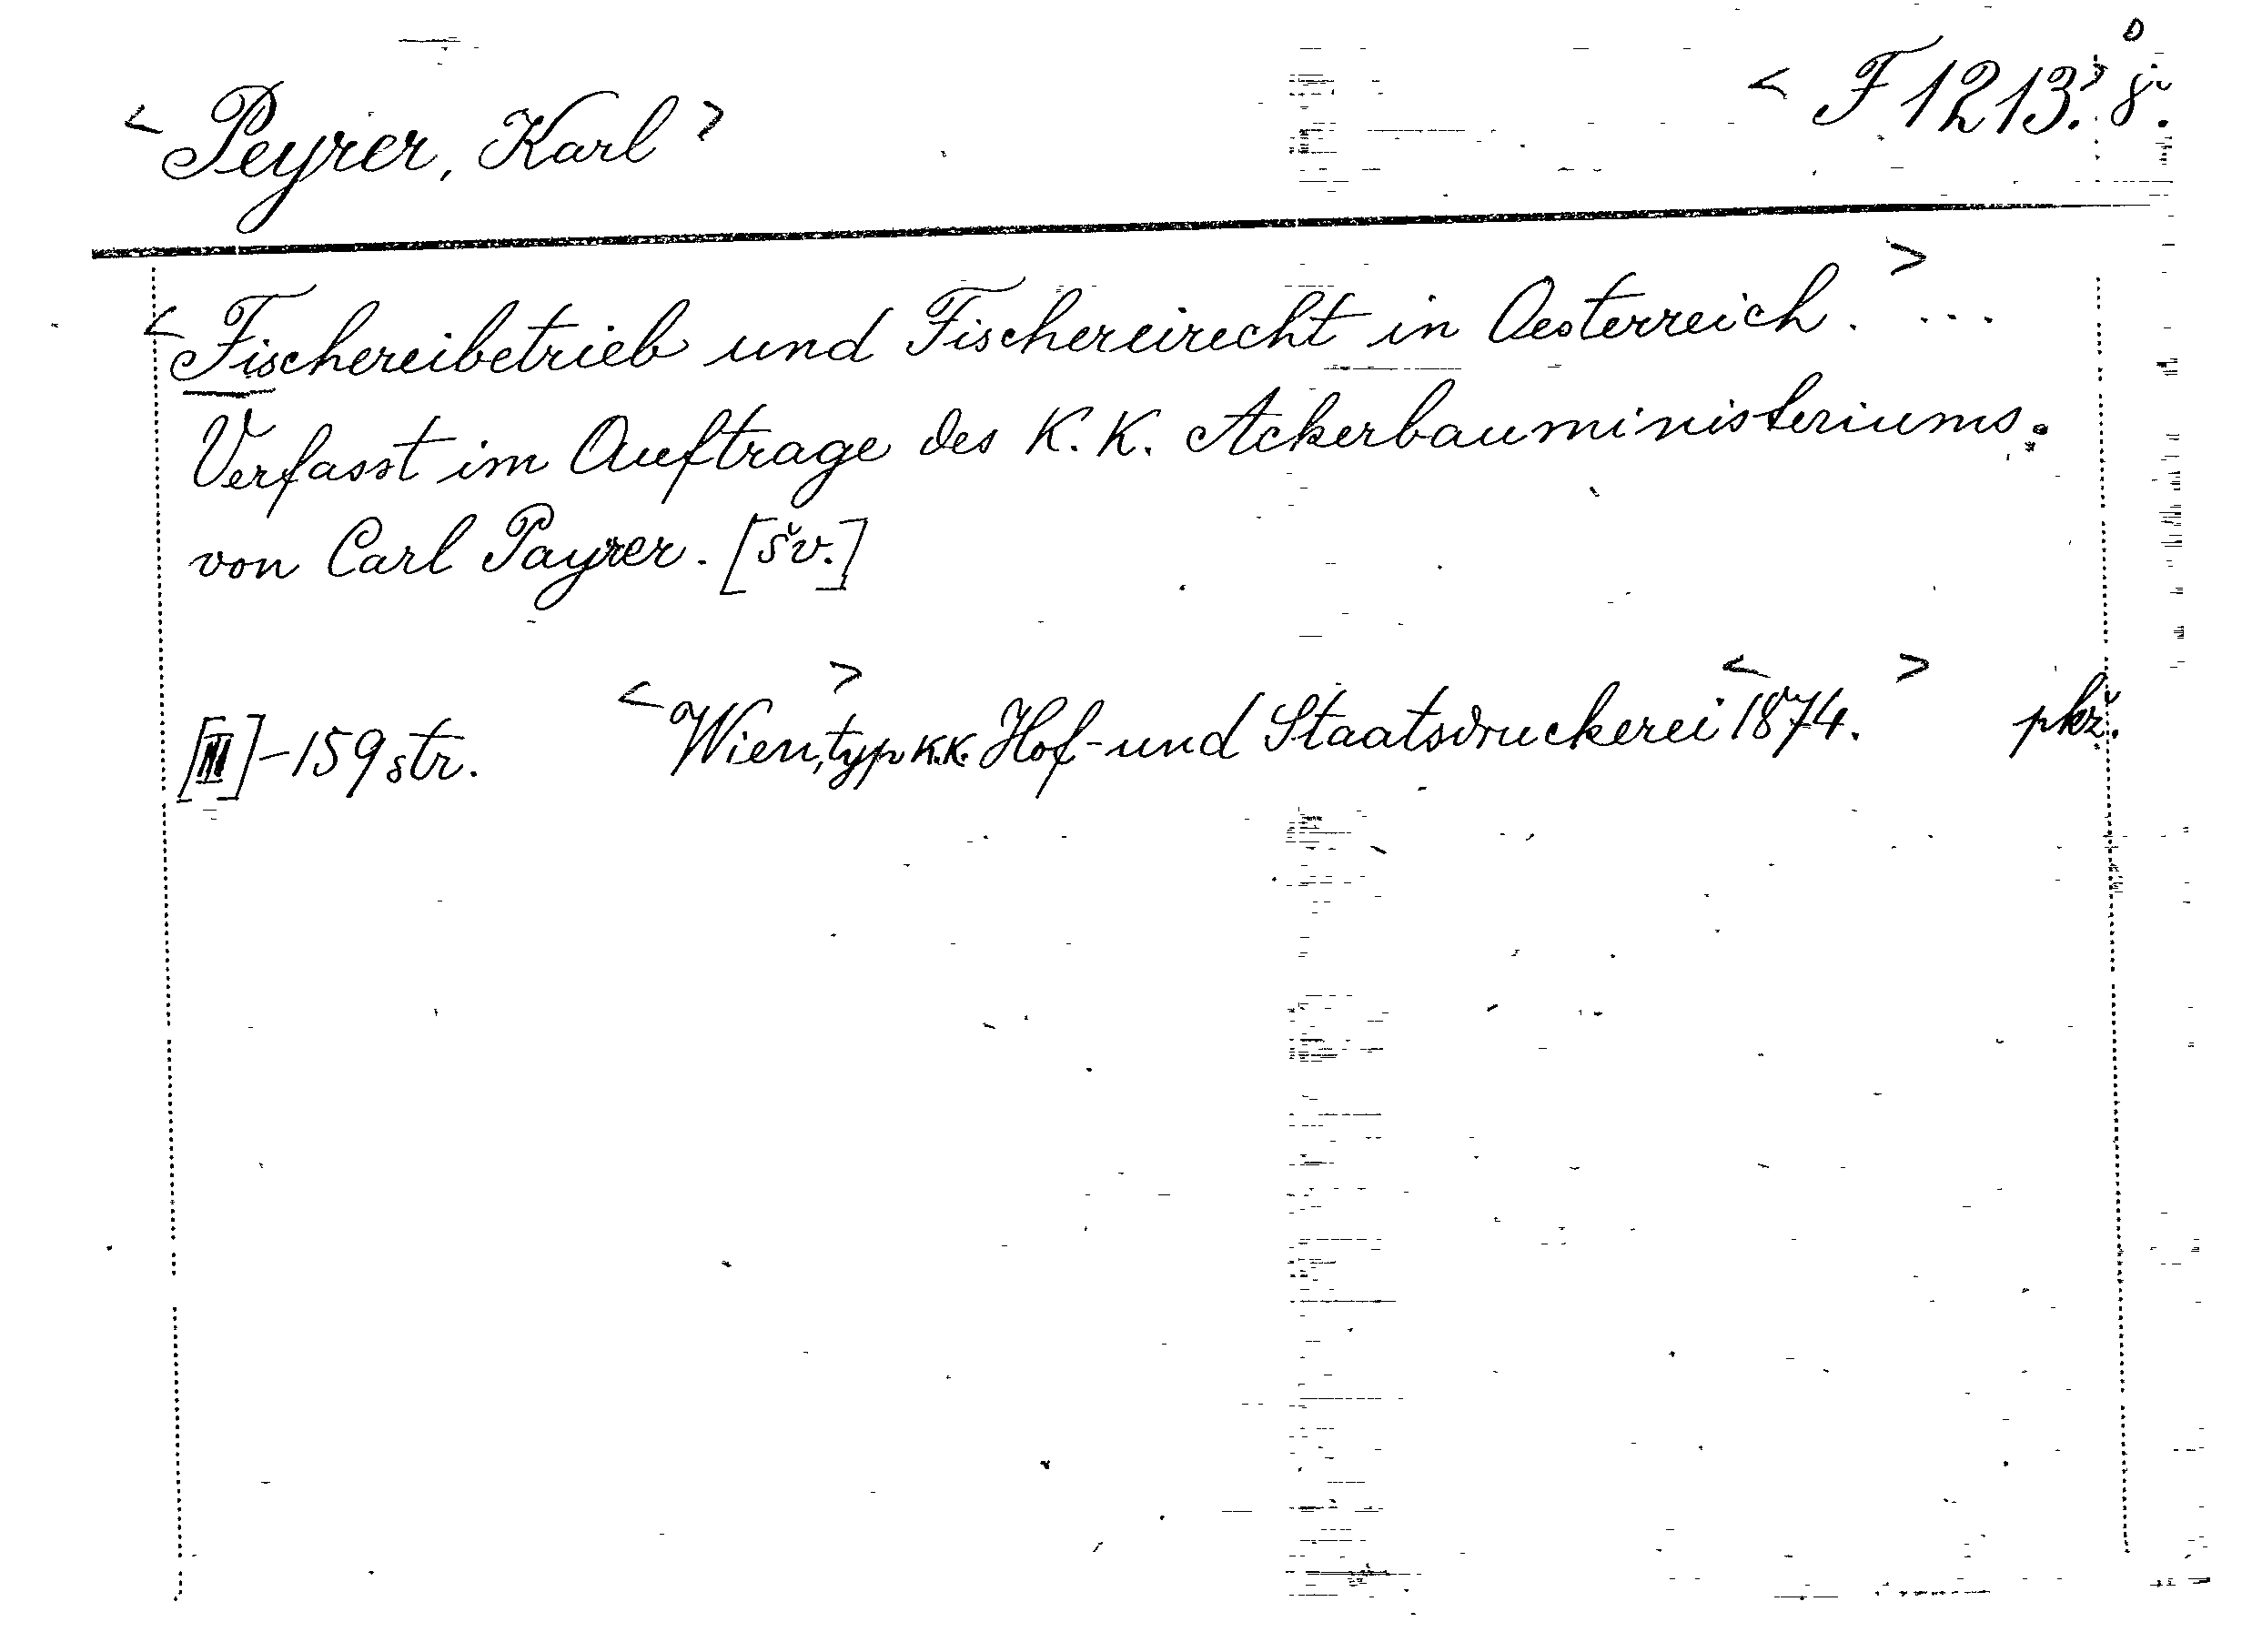 < Peyrer, Karl >
< F 1213. > 8°.
< Fischereibetrieb und Fischereirecht in Oesterreich. > ...
Verfasst im Auftrage des K. K. Ackerbauministeriums.
von Carl Payrer. [šv.]
[III]-159 str. < Wien, > typ K.K. Hof- und Staatsdruckerei < 1874. > pkž.